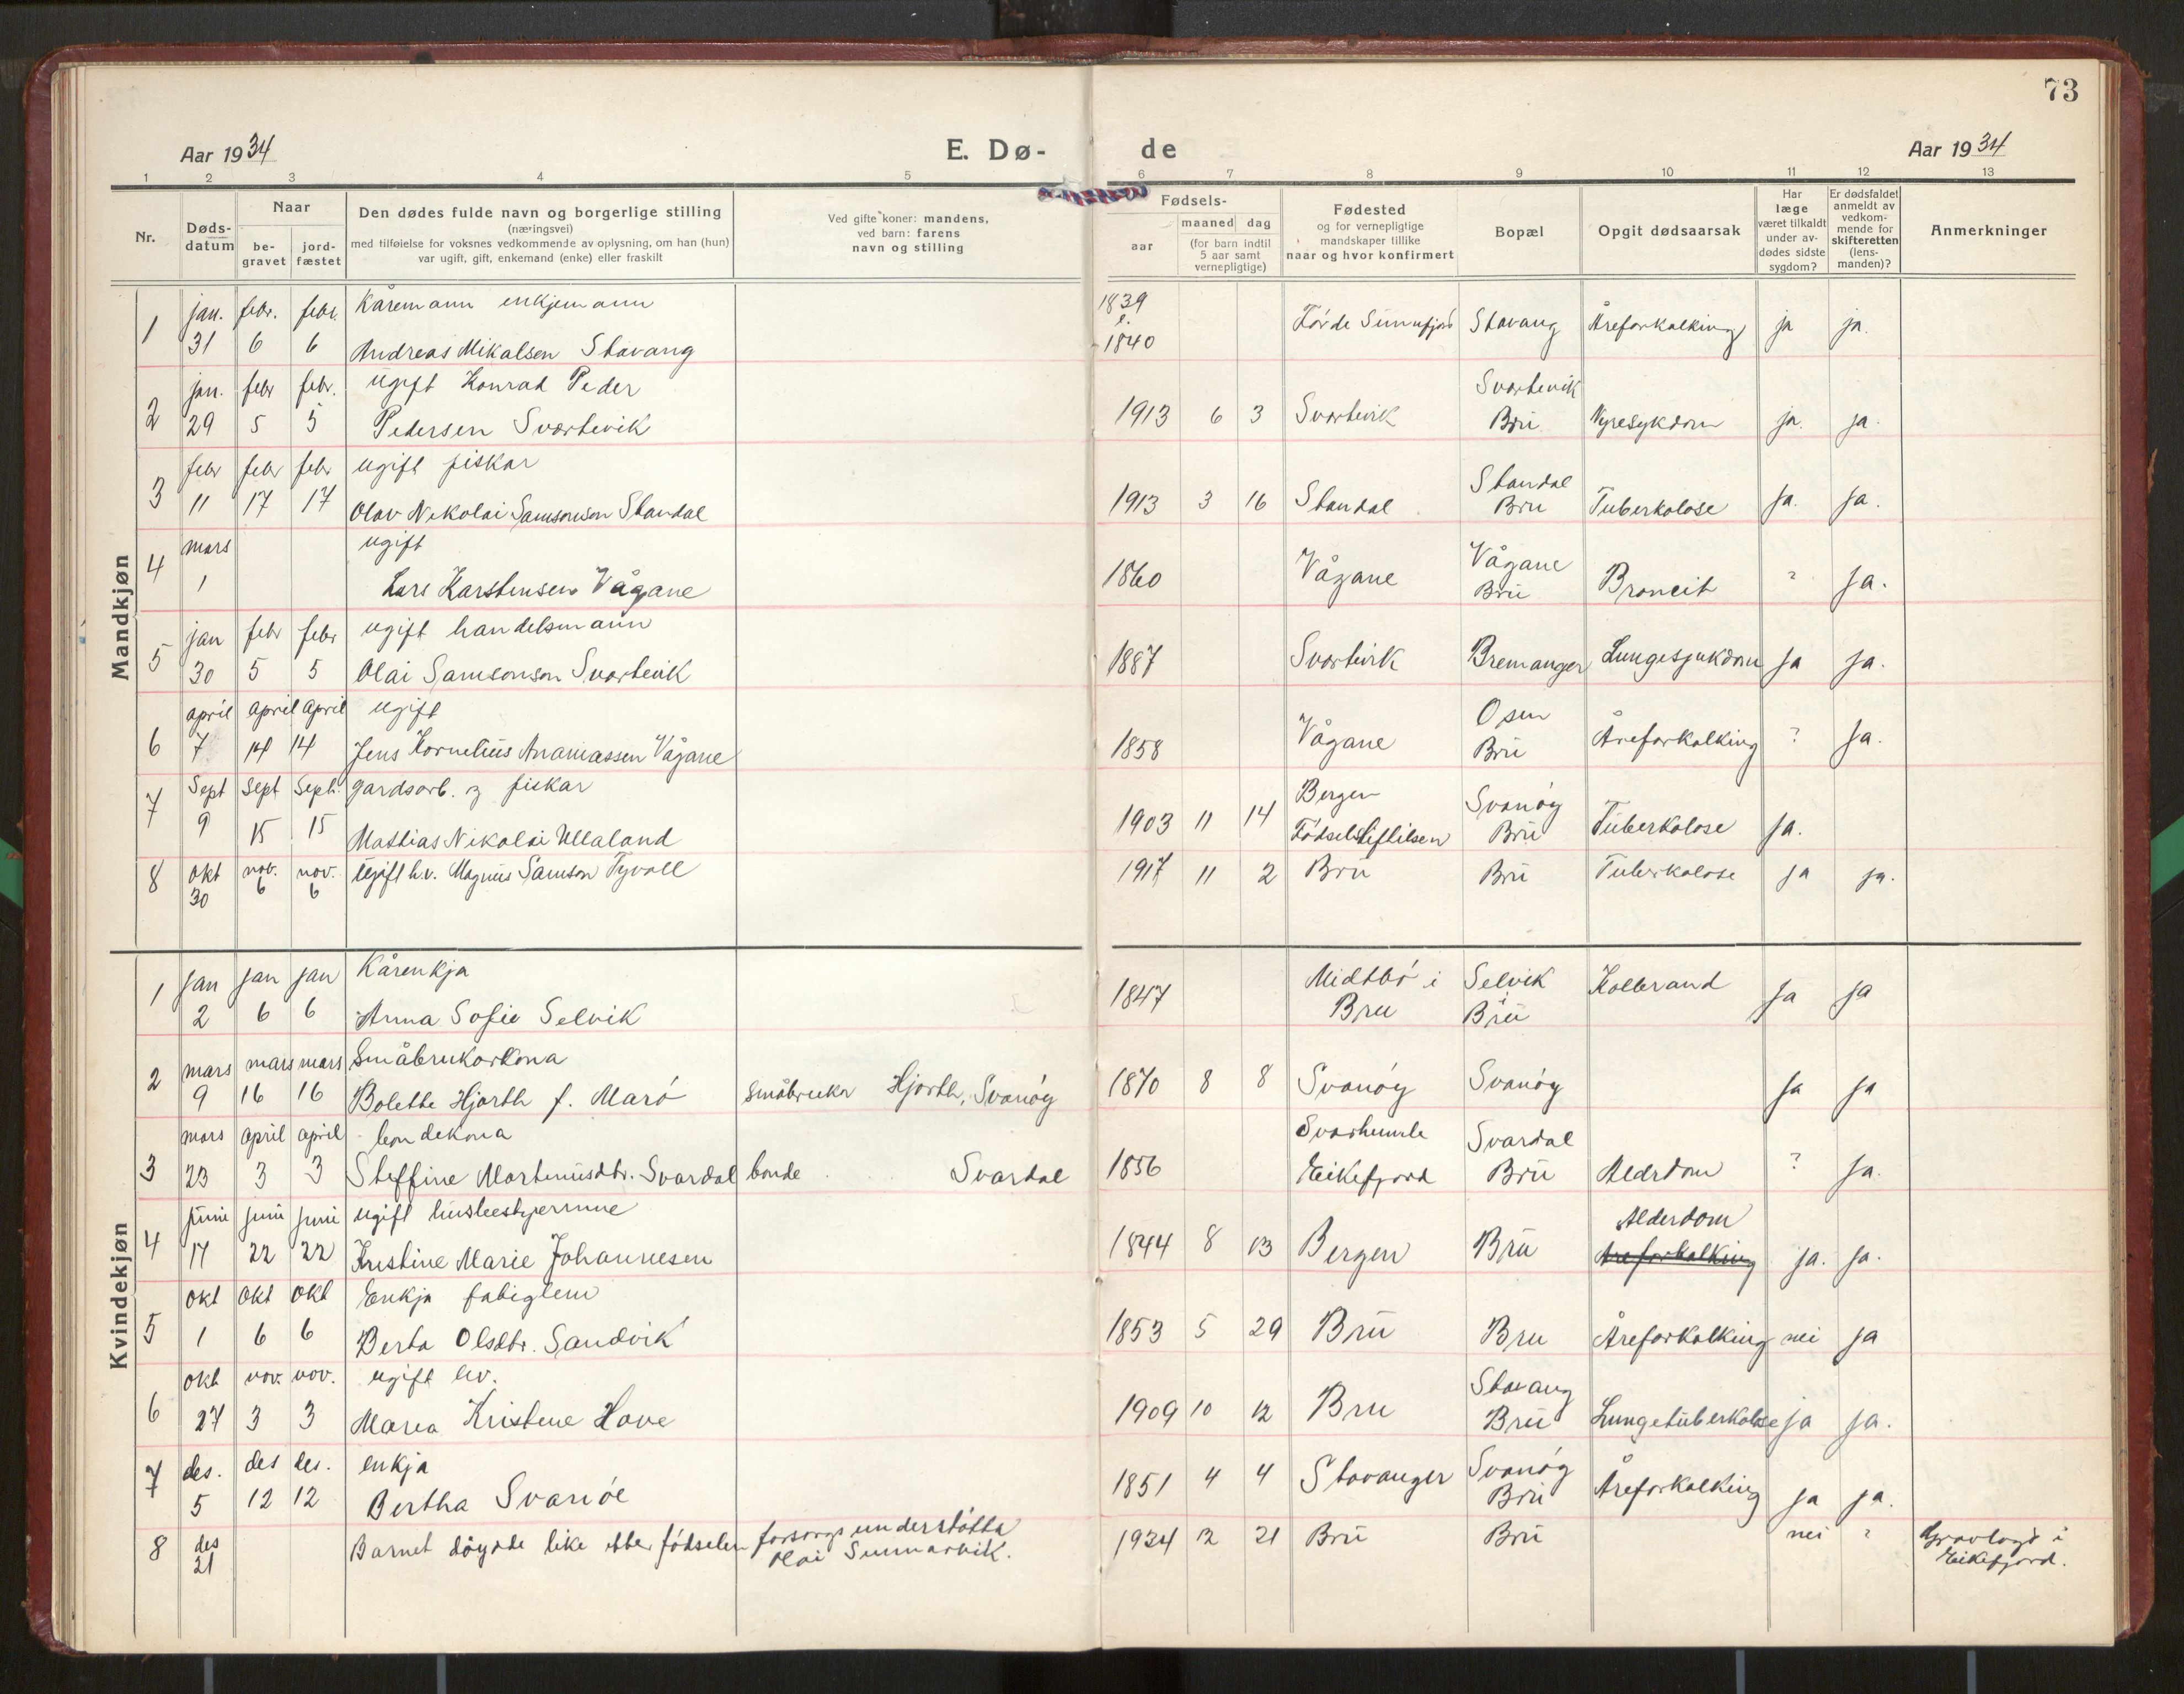 73
Aar 1934
E. Dø-
de
Aar 1934
1 2 3 4 5 6 7 8 9 10 11 12 13
Nr.
Døds-
datum
Naar
be-
gravet
jord-
fæstet
Den dødes fulde navn og borgerlige stilling
(næringsvei)
med tilføielse for voksnes vedkommende av oplysning, om han (hun)
var ugift, gift, enkemand (enke) eller fraskilt
Ved gifte koner: mandens,
ved barn: farens
navn og stilling
Fødsels-
aar
maaned dag
(for barn indtil
5 aar samt
vernepligtige)
Fødested
og for vernepligtige
mandskaper tillike
naar og hvor konfirmert
Bopæl
Opgit dødsaarsak
Har
læge
været tilkaldt
under av-
dødes sidste
sygdom?
Er dødsfaldet
anmeldt av
vedkom-
mende for
skifteretten
(lens-
manden)?
Anmerkninger
Mandkjøn
1 jan. febr. febr. Kåremann enkjemann 1839
31 6 6 Andreas Mikalsen Stavang e. 1840 Førde Sunnfjord Stavang Åreforkalking ja ja.
2 jan. febr febr. ugift Konrad Peder Svortevik
29 5 5 Pedersen Svortevik 1913 6 3 Svortevik Bru Nyresykdom ja. ja.
3 febr febr febr ugift fiskar Standal
11 17 17 Olav Nikolai Samsonson Standal 1913 3 16 Standal Bru Tuberkolose ja. ja.
4 mars ugift Vågane
1 Lars Karstensen Vågane 1860 Vågane Bru Broncit ? ja.
5 jan febr febr ugift handelsmann
30 5 5 Olai Samsonson Svortevik 1887 Svortevik Bremanger Lungesjukdom ja ja.
6 april april april ugift Osen
7 14 14 Jens Kornelius Ananiassen Vågane 1858 Vågane Bru Åreforkalking ? ja.
7 Sept Sept Sept. gardsarb. og fiskar Bergen Svanøy
9 15 15 Mathias Nikolai Ullaland 1903 11 14 Fødselstiftelsen Bru Tuberkolose ja.
8 okt nov. nov. Ugift h.v. Magnus Samson Tyvoll 1917 11 2 Bru Bru Tuberkolose ja ja.
30 6 6
Kvindekjøn
1 jan jan jan Kårenkja Midtbø i Selvik Kolbrand
2 6 6 Anna Sofie Selvik 1847 Bru i Bru ja ja
2 mars mars mars Småbrukarkona
9 16 16 Bolette Hjorth f. Marø Småbrukar Hjorth, Svanøy 1870 8 8 Svanøy Svanøy ja ja
3 mars april april bondekona Svarhumle Svardal
23 3 3 Steffine Martenusdtr. Svardal bonde Svardal 1856 Eikefjord Bru Alderdom ? ja.
4 juni juni juni ugift husbestyerinne Alderdom
17 22 22 Kristine Marie Johannesen 1844 8 13 Bergen Bru Åreforkalking ja. ja.
5 okt okt okt Enkja fatiglem
1 6 6 Berta Olsdtr. Sandvik 1853 5 29 Bru Bru Åreforkalking nei ja
6 okt nov. nov. ugift hv. Stavang
27 3 3 Marea Kristene Hove 1909 10 12 Bru Bru Lungetuberkolose ja ja.
7 des. des des. enkja Svanøy
5 12 12 Bertha Svanøe 1851 4 4 Stavanger Bru Åreforkalking ja ja.
8 des Barnet døyde like etter fødselen forsorgsunderstøtta 1934 12 21 Bru Bru nei ? Gravlagt i
21 Olai Sunnarvik. Eikefjord.